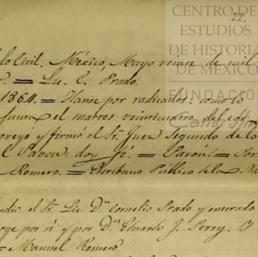 CENTRO DE
ESTUDIOS
DE HISTORIA
DE MÉXICO
FUNDACIÓN
22.
lo Civil. México, Mayo veinte de mil
= Lic. C. Prado.
1864. = Hanse por radicados: como lo
el martes veinticuatro del co
proveyó y firmó el Sr. Juez Segundo de lo
C. Pavon: doy fé. = Pavón. =
Romero. = Escribano Público
el Sr. Lic. Dn. Cornelio Prado y enterado
oye por sí y por Dn. Eduardo J. Perry:
= Manuel Romero